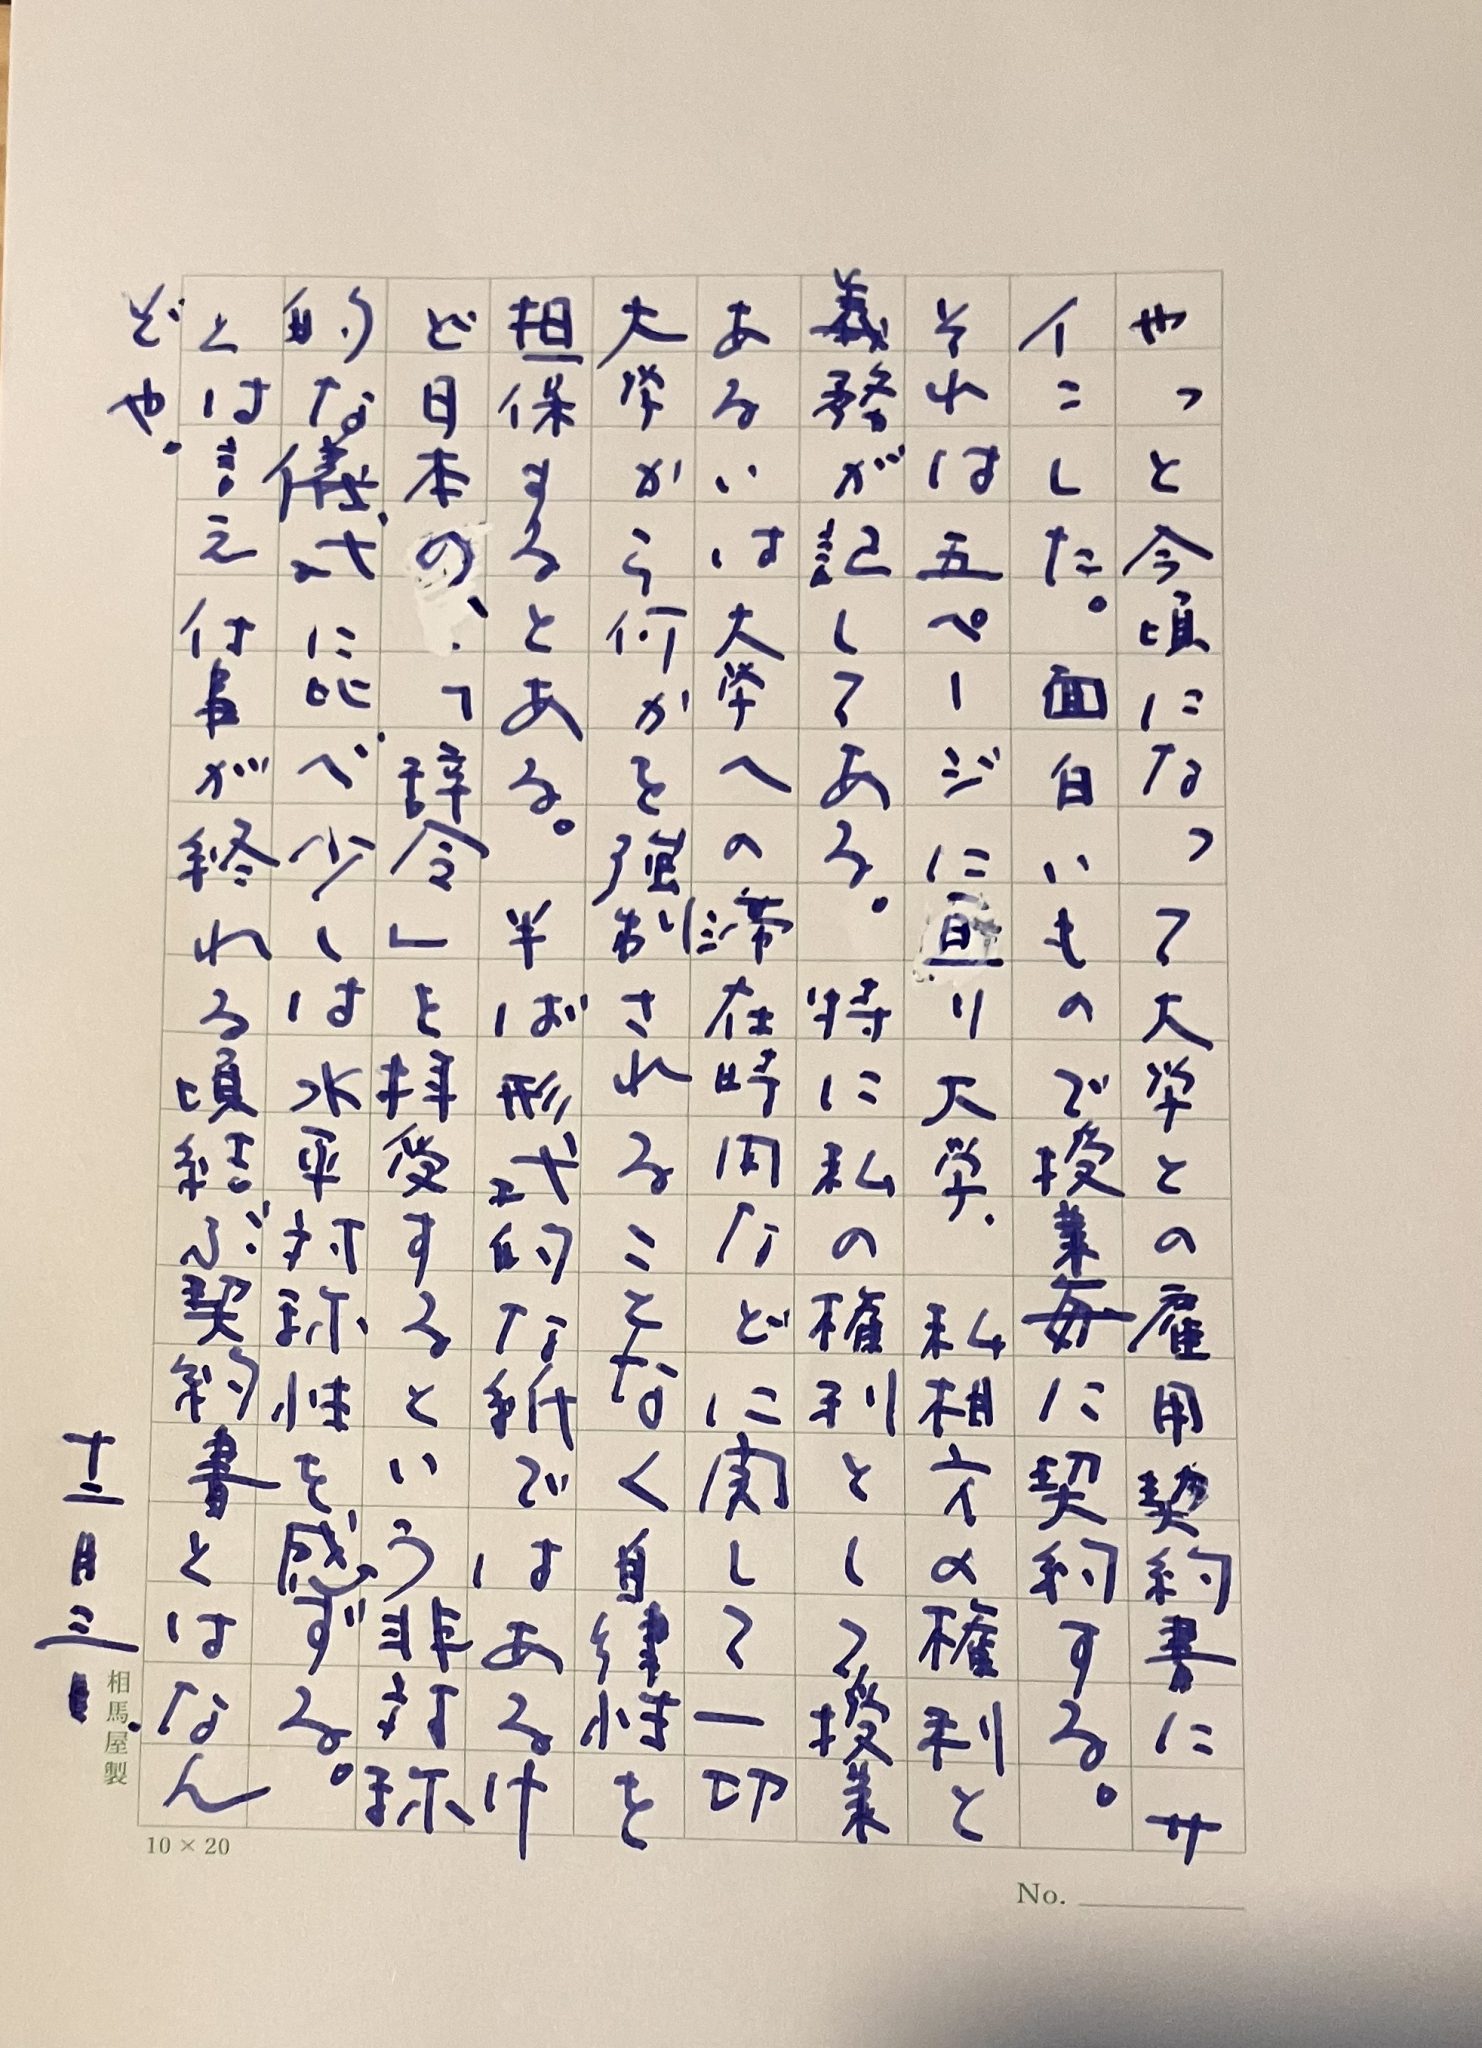 やっと今頃になって大学との雇用契約書にサ
イこした。面白いもので授業毎に契約する。
それは五ページに亘り大学、私相方の権利と
義務が記してある。特に私の権利として授業
あるいは大学への滞在時間などに関して一切
大学から何かを強制されることなく自律性を
担保するとある。半ば形式的な紙ではあるけ
ど日本の、「辞令」と拝受するという非対称
的な儀式に比べ少しは水平対称性を感ずる。
とは言え仕事が終れる頃結ぶ契約書とはなん
ぞや。
十二月三日
相馬屋製
10 × 20
No.